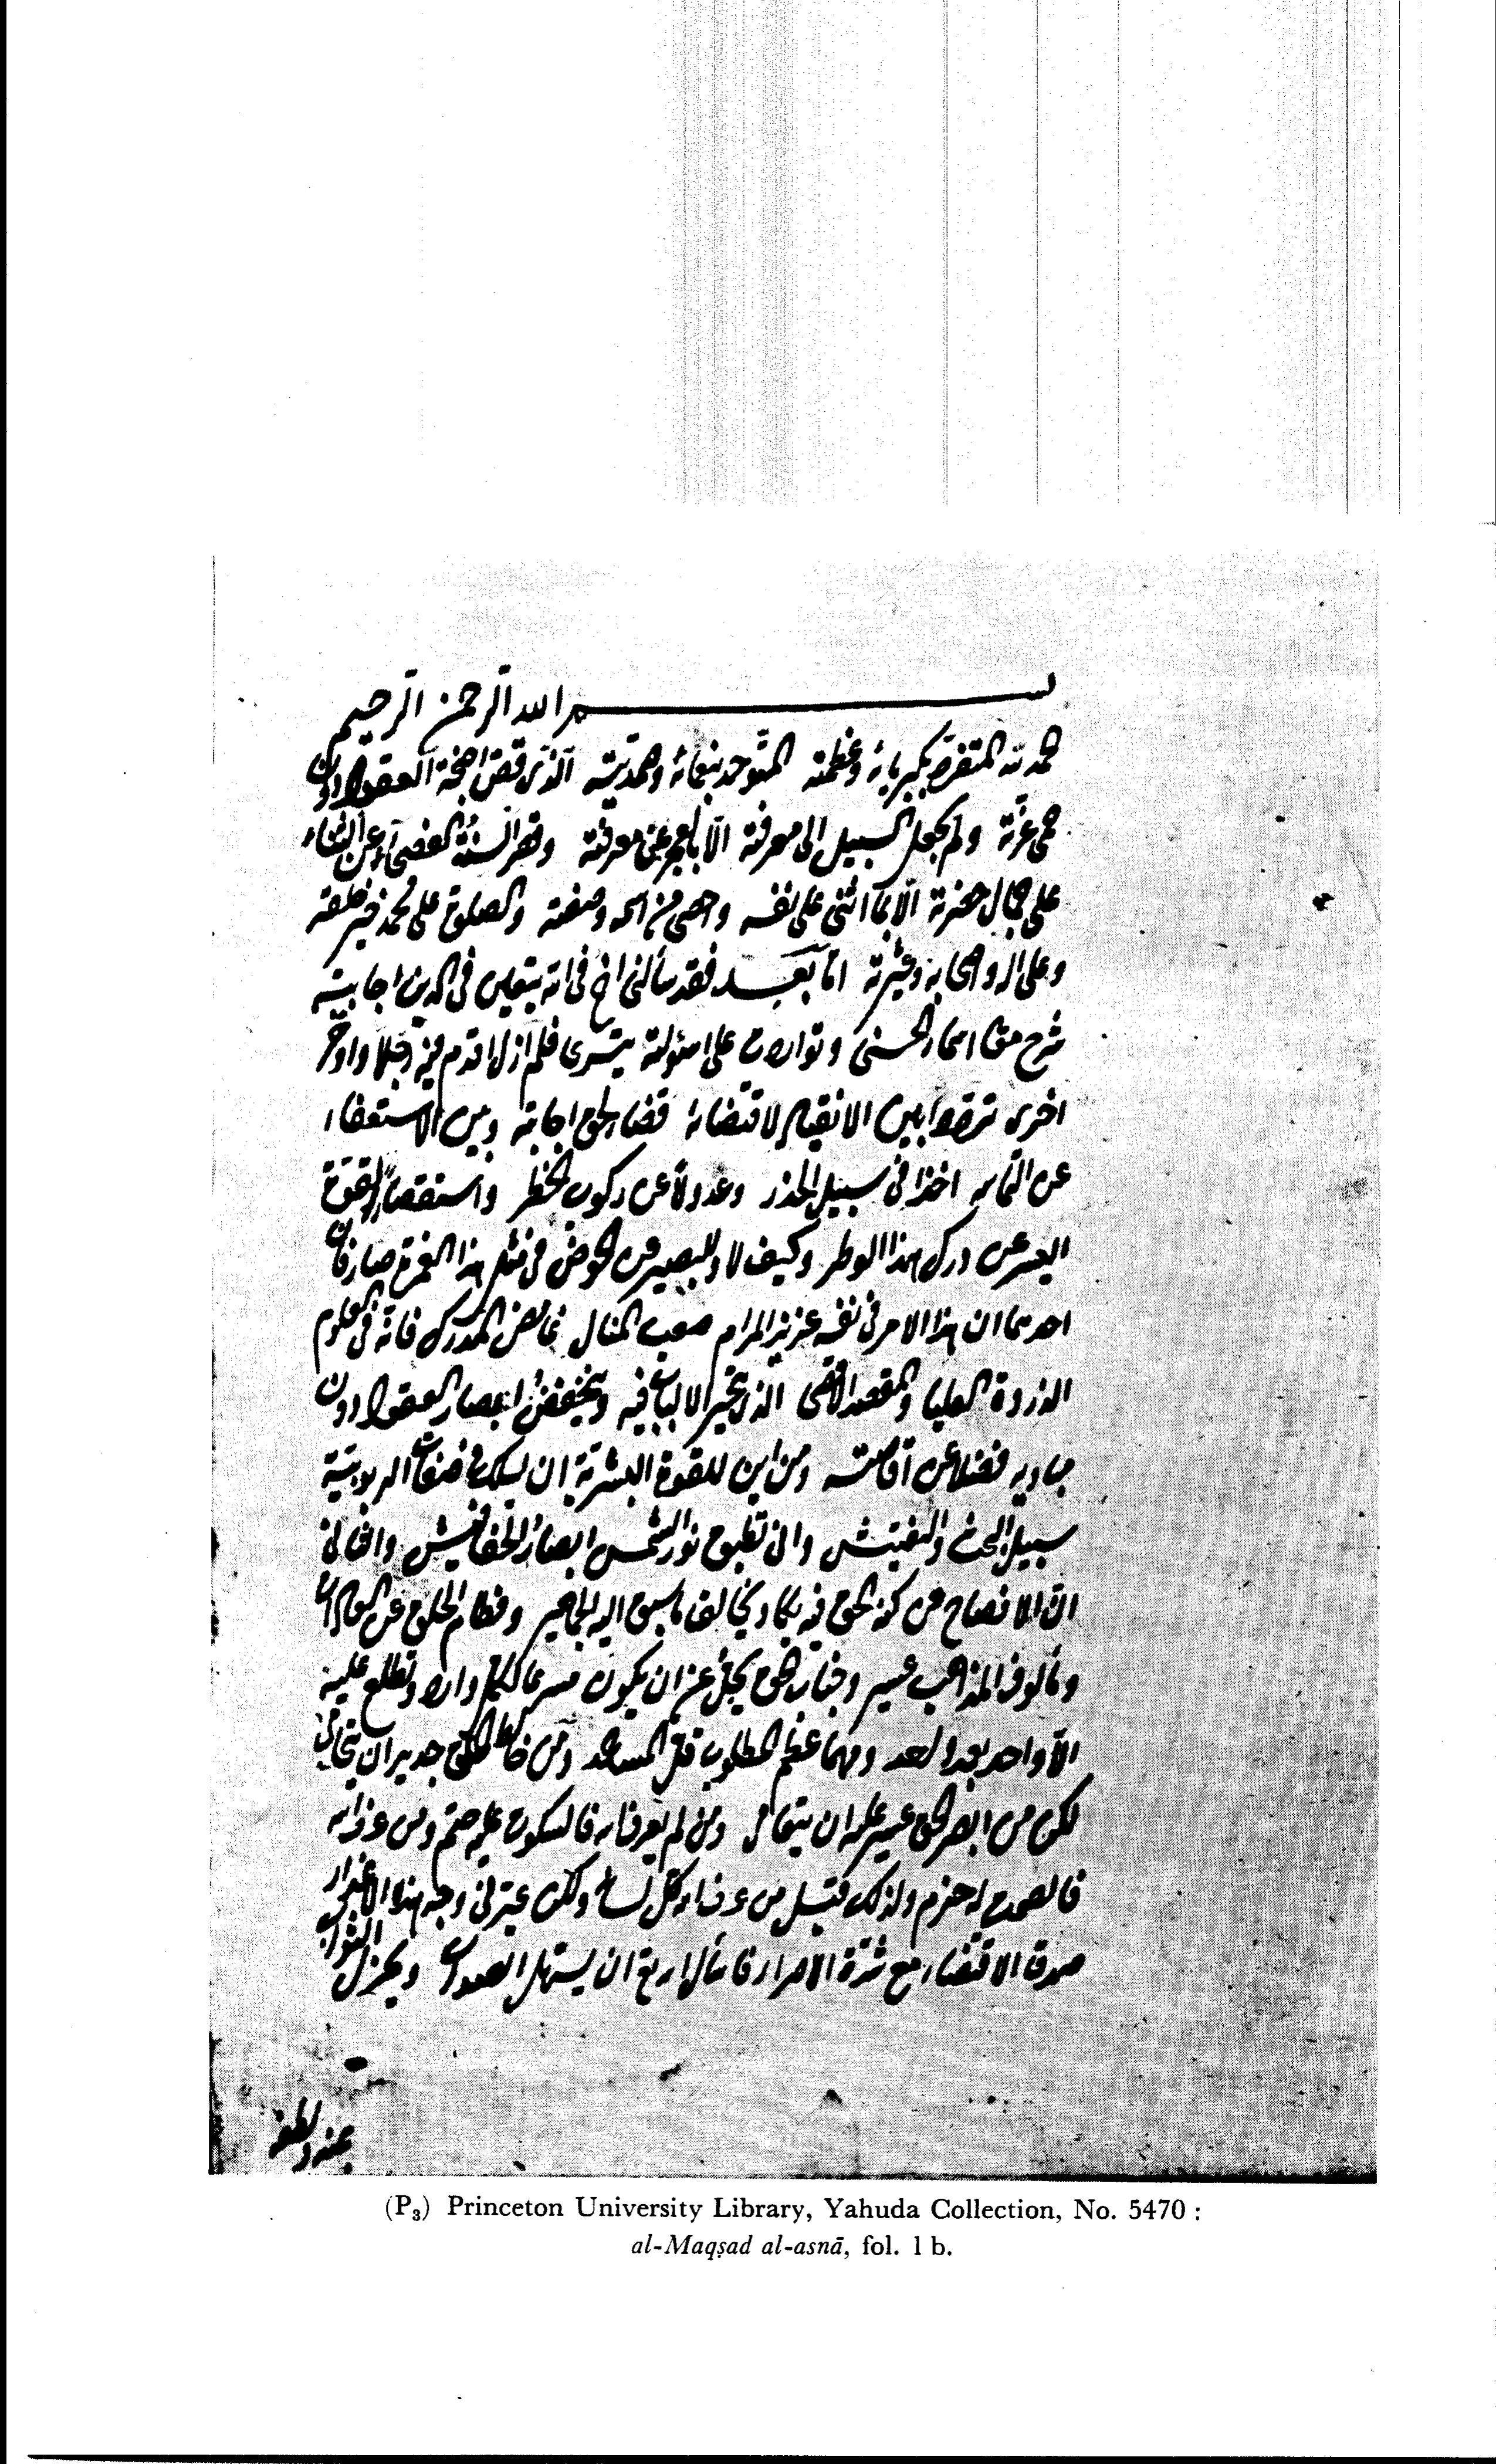 بسم الله الرحمن الرحيم
الحمد لله المتفرد بكبريائه وعظمته المتوحد بتعاليه وصمديته الذي قص اجنحة العقول دون
حمى عزته ولم يجعل السبيل الى معرفته الا بالعجز عن معرفته وقصر السنة الفصحاء عن الثناء
على جمال حضرته الا بما اثنى على نفسه واحصى من اسمه وصفته والصلوة على محمد خير خلقه
وعلى اله واصحابه وعترته اما بعد فقد سألني اخ في الله يتعين في الدين اجابته
شرح معاني اسماء الله الحسنى وتواردت على اسئولته تترى فلم ازل اقدم فيه رجلا واؤخر
اخرى ترددا بين الانقياد لاقتضائه قضاء لحق اجابته وبين الاستعفاء
عن التماسه اخذا في سبيل الحذر وعدولا عن ركوب الخطر واستقصارا لقوة
البشر عن درك هذا الوطر وكيف لا وللبصير عن الخوض في مثل هذا الغمرة صارفان
احدهما ان هذا الامر في نفسه عزيز المرام صعب المنال غامض المدرك فانه في العلوم
الذروة العليا والمقصد الاقصى الذي تتحير الالباب فيه وتنخفض ابصار العقول دون
مباديه فضلا عن اقاصيه ومن اين للقوة البشرية ان تسلك في صفات الربوبية
سبيل البحث والتفتيش وانى تطيق نور الشمس ابصار الخفافيش والثاني
ان الافصاح عن كنه الحق فيه يكاد يخالف ما سبق اليه الجماهير وفطام الخلق عن العادات
ومألوف المذاهب عسير وجناب الحق يجل عن ان يكون مشرعا لكل وارد وتطلع عليه
الا واحد بعد واحد ومهما عظم المطلوب قل المساعد ومن خالط الخلق جدير ان يتحامى
لكن من ابصر الحق عسير عليه ان يتعامى ومن لم يعرف الله فالسكوت عليه حتم ومن عرف الله
فالصمت له حزم ولذلك قيل من عرف الله كل لسانه ولكن غبر في وجه هذا الاعذار
صدق الاقتضاء مع شدة الاصرار فاسأل الله تعالى ان يسهل الصواب ويجزل الثواب
بمنه ولطفه
(P₃) Princeton University Library, Yahuda Collection, No. 5470 :
al-Maqṣad al-asnā, fol. 1 b.